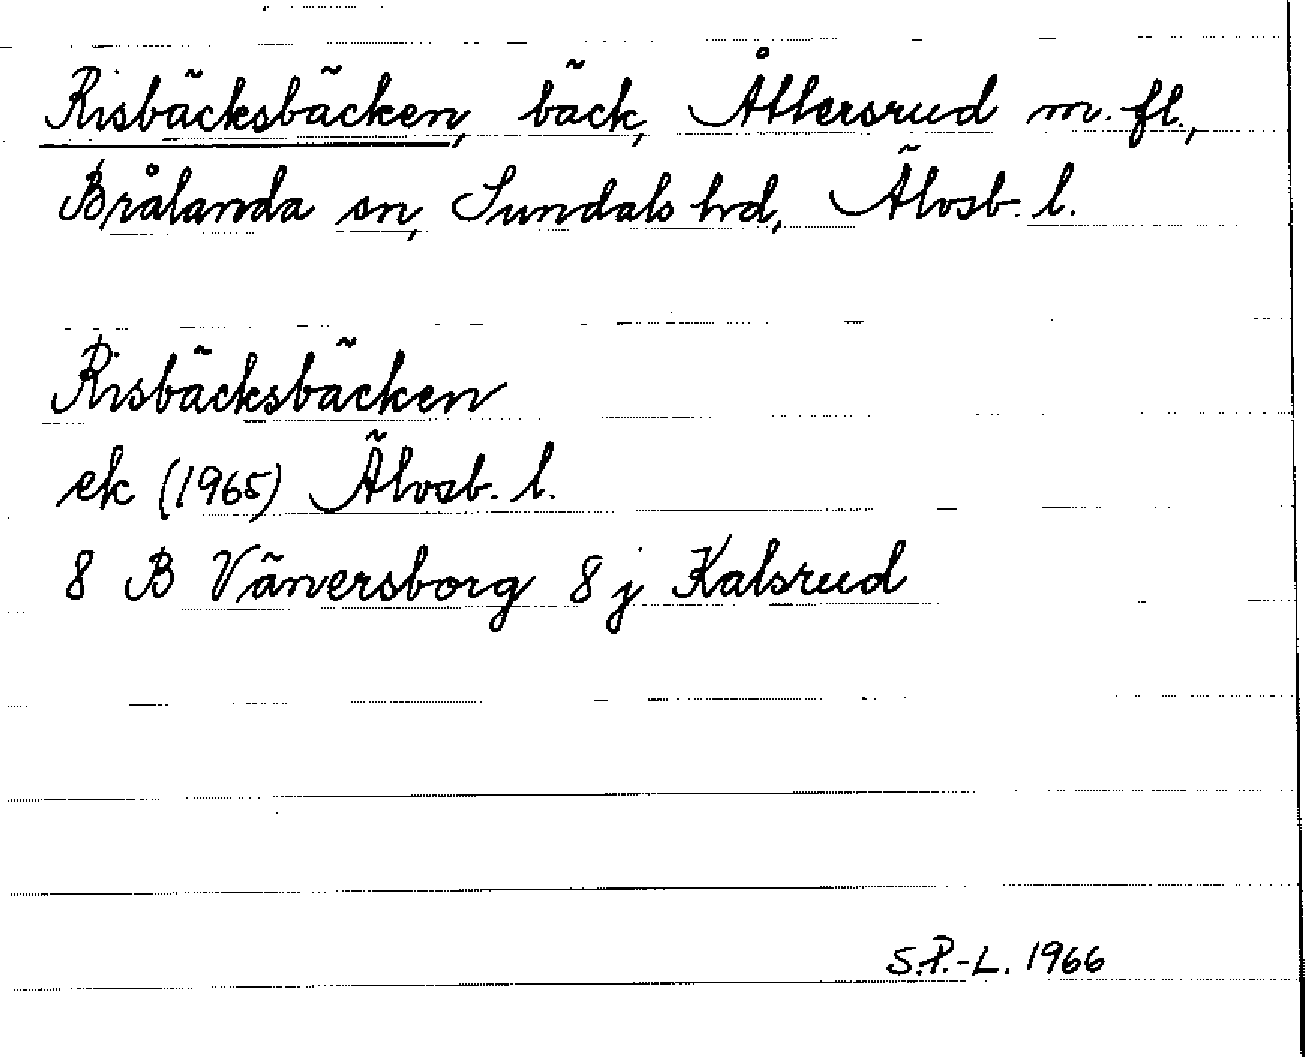 Risbäcksbäcken, bäck, Åttersrud m. fl.,
Brålanda sn, Sundals hd, Älvsb. l.
Risbäcksbäcken
ek (1965) Älvsb. l.
8 B Vänersborg 8 j Kalsrud
S.P.-L. 1966